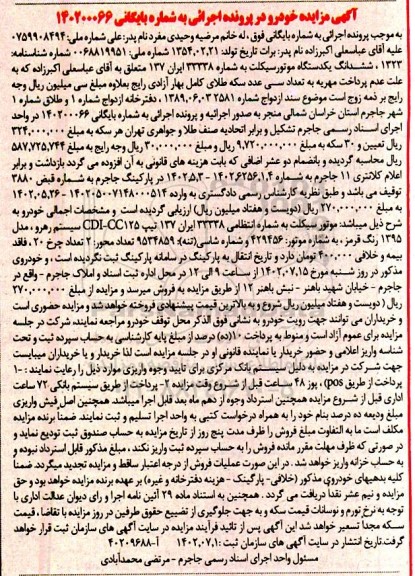 آگهی مزایده خودرو در پرونده اجرائی به شماره بایگانی ۱۴۰۲۰۰۰۶۶
به موجب پرونده اجرائی به شماره بایگانی فوق، له خانم مرضیه وحیدی مفرد نام پدر: علی شماره ملی: ۰۷۵۹۹۰۸۴۹۴
علیه آقای عباسعلی اکبرزاده نام پدر: برات تاریخ تولد: ۱۳۵۴.۰۲.۲۱ شماره ملی: ۰۰۶۸۸۱۹۹۵۱ شماره شناسنامه:
۱۳۲۳ ، ششدانگ یکدستگاه موتورسیکلت به شماره ۳۳۳۳۸ ایران ۱۳۷ متعلق به آقای عباسعلی اکبرزاده که به
علت عدم پرداخت مهریه به تعداد سی عدد سکه طلای کامل بهار آزادی رایج بعلاوه مبلغ سی میلیون ریال وجه
رایج بر ذمه زوج است موضوع سند ازدواج شماره ۲۵۸۱ ۱۳۸۹.۰۶.۰۳ ، دفترخانه ازدواج شماره ۱ و طلاق شماره ۱
شهر جاجرم استان خراسان شمالی منجر به صدور اجرائیه و پرونده اجرائی به شماره بایگانی ۱۴۰۲۰۰۰۶۶ در واحد
اجرای اسناد رسمی جاجرم تشکیل و برابر اتحادیه صنف طلا و جواهری تهران هر سکه به مبلغ ۳۲۴,۰۰۰,۰۰۰
ریال تعیین و ۳۰ سکه به مبلغ ۹,۷۲۰,۰۰۰,۰۰۰ ریال و مبلغ ۳۰,۰۰۰,۰۰۰ ریال وجه رایج به مبلغ ۵۸۷,۷۲۵,۷۴۴
ریال محاسبه گردیده و بانضمام دو عشر اضافی که بابت هزینه های قانونی به آن افزوده می گردد بازداشت و برابر
اعلام کلانتری ۱۱ جاجرم به شماره ۱۴۰۲.۵.۳-۱۴۰۲۶۲۵۶.۱.۴ در پارکینگ جاجرم به شماره قبض ۳۸۸۰
توقیف می باشد و طبق نظریه کارشناس رسمی دادگستری به وارده ۱۴۰۲۰۵۰۰۷۱۴۸۰۰۰۵۱۴ - ۱۴۰۲.۰۵.۲۶
به مبلغ ۲۷۰,۰۰۰,۰۰۰ ریال (دویست و هفتاد میلیون ریال) ارزیابی گردیده است و مشخصات اجمالی خودرو به
شرح ذیل میباشد: موتور سیکلت به شماره انتظامی ۳۳۳۳۸ ایران ۱۳۷ تیپ CDI-CC۱۲۵ سیستم رهرو ، مدل
۱۳۹۵ رنگ قرمز ، به شماره موتور: ۴۲۹۴۵۶ و شماره شاسی(تنه): ۹۵۳۴۸۵۹ تعداد محور: ۲ تعداد چرخ ۲۰ ، فاقد
بیمه و خلافی ۴۰۰,۰۰۰ تومان دارد و تاریخ انتقال به پارکینگ در سامانه پارکینگ ثبت نگردیده است ، و خودروی
مذکور در روز شنبه مورخ ۱۴۰۲.۰۷.۱۵ از ساعت ۹ الی ۱۲ در محل اداره ثبت اسناد و املاک جاجرم - واقع در
جاجرم - خیابان شهید باهنر - نبش باهنر ۱۲ از طریق مزایده به فروش میرسد و مزایده از مبلغ ۲۷۰,۰۰۰,۰۰۰
ریال ( دویست و هفتاد میلیون ریال شروع و به بالاترین قیمت پیشنهادی فروخته خواهد شد و مزایده حضوری است
و خریداران می توانند جهت رویت خودرو به نشانی فوق الذکر محل توقف خودرو مراجعه نمایند، شرکت در جلسه
مزایده برای عموم آزاد است و منوط به پرداخت ۱۰(ده) درصد از مبلغ پایه کارشناسی به حساب سپرده ثبت و تحت
شناسه واریز اعلامی و حضور خریدار یا نماینده قانونی او در جلسه مزایده است لذا خریدار و یا خریداران میبایست
جهت شرکت در مزایده به دلیل سیستم بانک مرکزی برای تایید وجوه واریزی موارد ذیل را رعایت نمایند : ۱-
پرداخت از طریق (pos) ، یوز ۴۸ ساعت قبل از شروع وقت مزایده ۲- پرداخت از طریق سیستم بانکی ۷۲ ساعت
اداری قبل از شروع مزایده همچنین استرداد وجوه از دهم ماه بعد قابل اجرا میباشد. همچنین اصل فیش واریزی
مبلغ ودیعه ده درصد بنام خود را به همراه درخواست کتبی به واحد اجرا تسلیم و ثبت نمایند. ضمنا برنده مزایده
مکلف است ما به التفاوت مبلغ فروش را ظرف مدت پنج روز از تاریخ مزایده به حساب صندوق ثبت تودیع نماید و
در صورتی که ظرف مهلت مقرر مانده فروش را به حساب سپرده ثبت واریز نکند ، مبلغ مذکور قابل استرداد نبوده و
به حساب خزانه واریز خواهد شد . در این صورت عملیات فروش از درجه اعتبار ساقط و مزایده تجدید میگردد. ضمناً
کلیه بدهیهای خودروی مذکور (خلافی- پارکینگ - هزینه دفترخانه و غیره) بر عهده برنده مزایده خواهد بود و حق
مزایده و نیم عشر نقداً دریافت می گردد . همچنین به استناد ماده ۲۹ آئین نامه اجرا و رای دیوان عدالت اداری با
توجه به نرخ تورم و نوسانات قیمت سکه و به جهت جلوگیری از تضییع حقوق طرفین در روز مزایده با تقاضا ، قیمت
سکه مجدا تسعیر خواهد شد این آگهی پس از تائید فرآیند مزایده در سایت آگهی های سازمان ثبت قرار خواهد
گرفت.تاریخ انتشار در سایت آگهی های سازمان ثبت : ۱۴۰۲.۰۷.۱ آ-۴۰۲۰۹۶۸۸
مسئول واحد اجرای اسناد رسمی جاجرم - مرتضی محمدآبادی